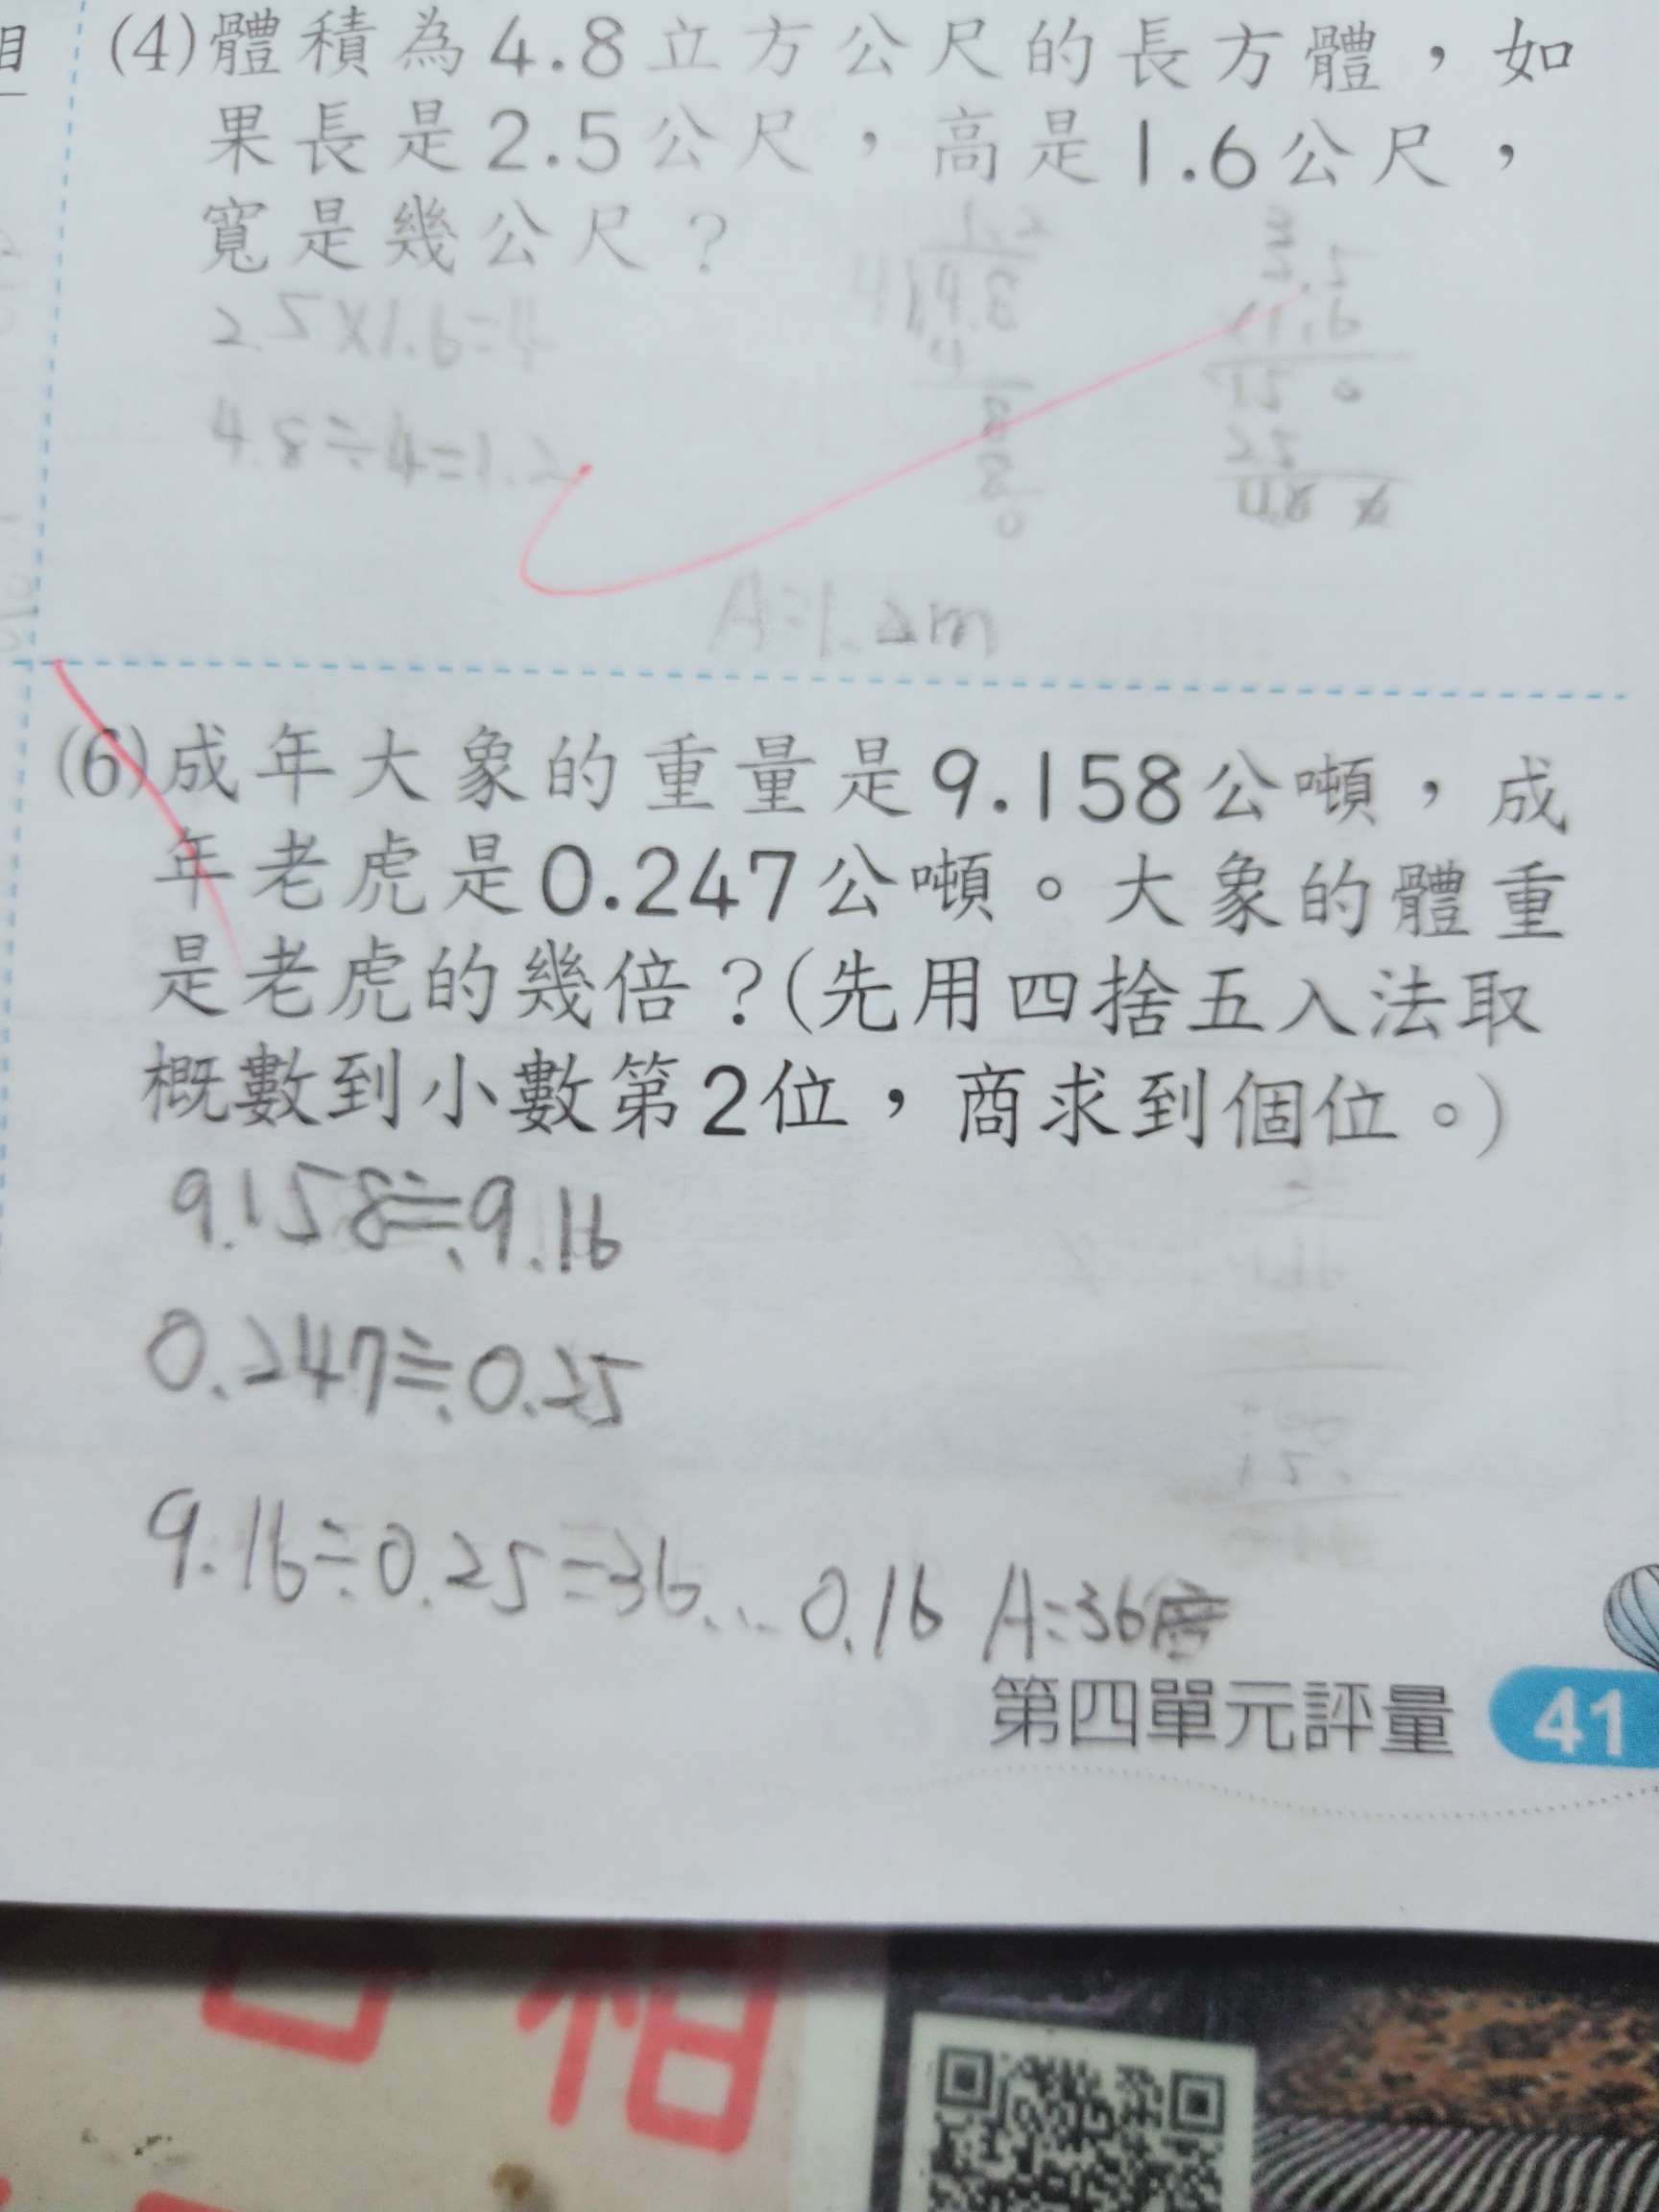 (4)體積為4.8立方公尺的長方體，如
果長是2.5公尺，高是1.6公尺，
寬是幾公尺？
2.5×1.6=4
4.8÷4=1.2
1.2
4 4.8
4
8
8
0
2.5
×1.6
15 0
25
A=1.2m
(6)成年大象的重量是9.158公噸，成
年老虎是0.247公噸。大象的體重
是老虎的幾倍？(先用四捨五入法取
概數到小數第2位，商求到個位。)
9.158≒9.16
0.247≒0.25
9.16÷0.25=36...0.16 A=36倍
第四單元評量 41